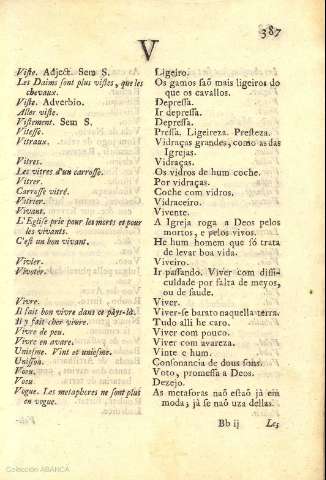 387
V
Viste. Adject. Sem S. Ligeiro.
Les Daims sont plus vistes, que les Os gamos saõ mais ligeiros do
chevaux. que os cavallos.
Viste. Adverbio. Depressa.
Aller viste. Ir depressa.
Vistement. Sem S. Depressa.
Vitesse. Pressa. Ligeireza. Presteza.
Vitraux. Vidraças grandes, como as das
Igrejas.
Vitres. Vidraças.
Les vitres d'un carrosse. Os vidros de hum coche.
Vitrer. Por vidraças.
Carrosse vitré. Coche com vidros.
Vitrier. Vidraceiro.
Vivant. Vivente.
L'Eglise prie pour les morts et pour A Igreja roga a Deos pelos
les vivants. mortos, e pelos vivos.
C'est un bon vivant. He hum homem que só trata
de levar boa vida.
Vivier. Viveiro.
Vivoter. Ir passando. Viver com diffi-
culdade por falta de meyos,
ou de saude.
Vivre. Viver.
Il fait bon vivre dans ce päys-là. Viver-se barato naquella terra.
Il y fait cher vivre. Tudo alli he caro.
Vivre de peu. Viver com pouco.
Vivre en avare. Viver com avareza.
Uniesme. Vint et uniesme. Vinte e hum.
Unisson. Consonancia de dous sons.
Voeu. Voto, promessa a Deos.
Voeu. Dezejo.
Vogue. Les metaphores ne sont plus As metaforas naõ estaõ já em
en vogue. moda; já se naõ uza dellas.
Bb ij Les
Colección ABANCA